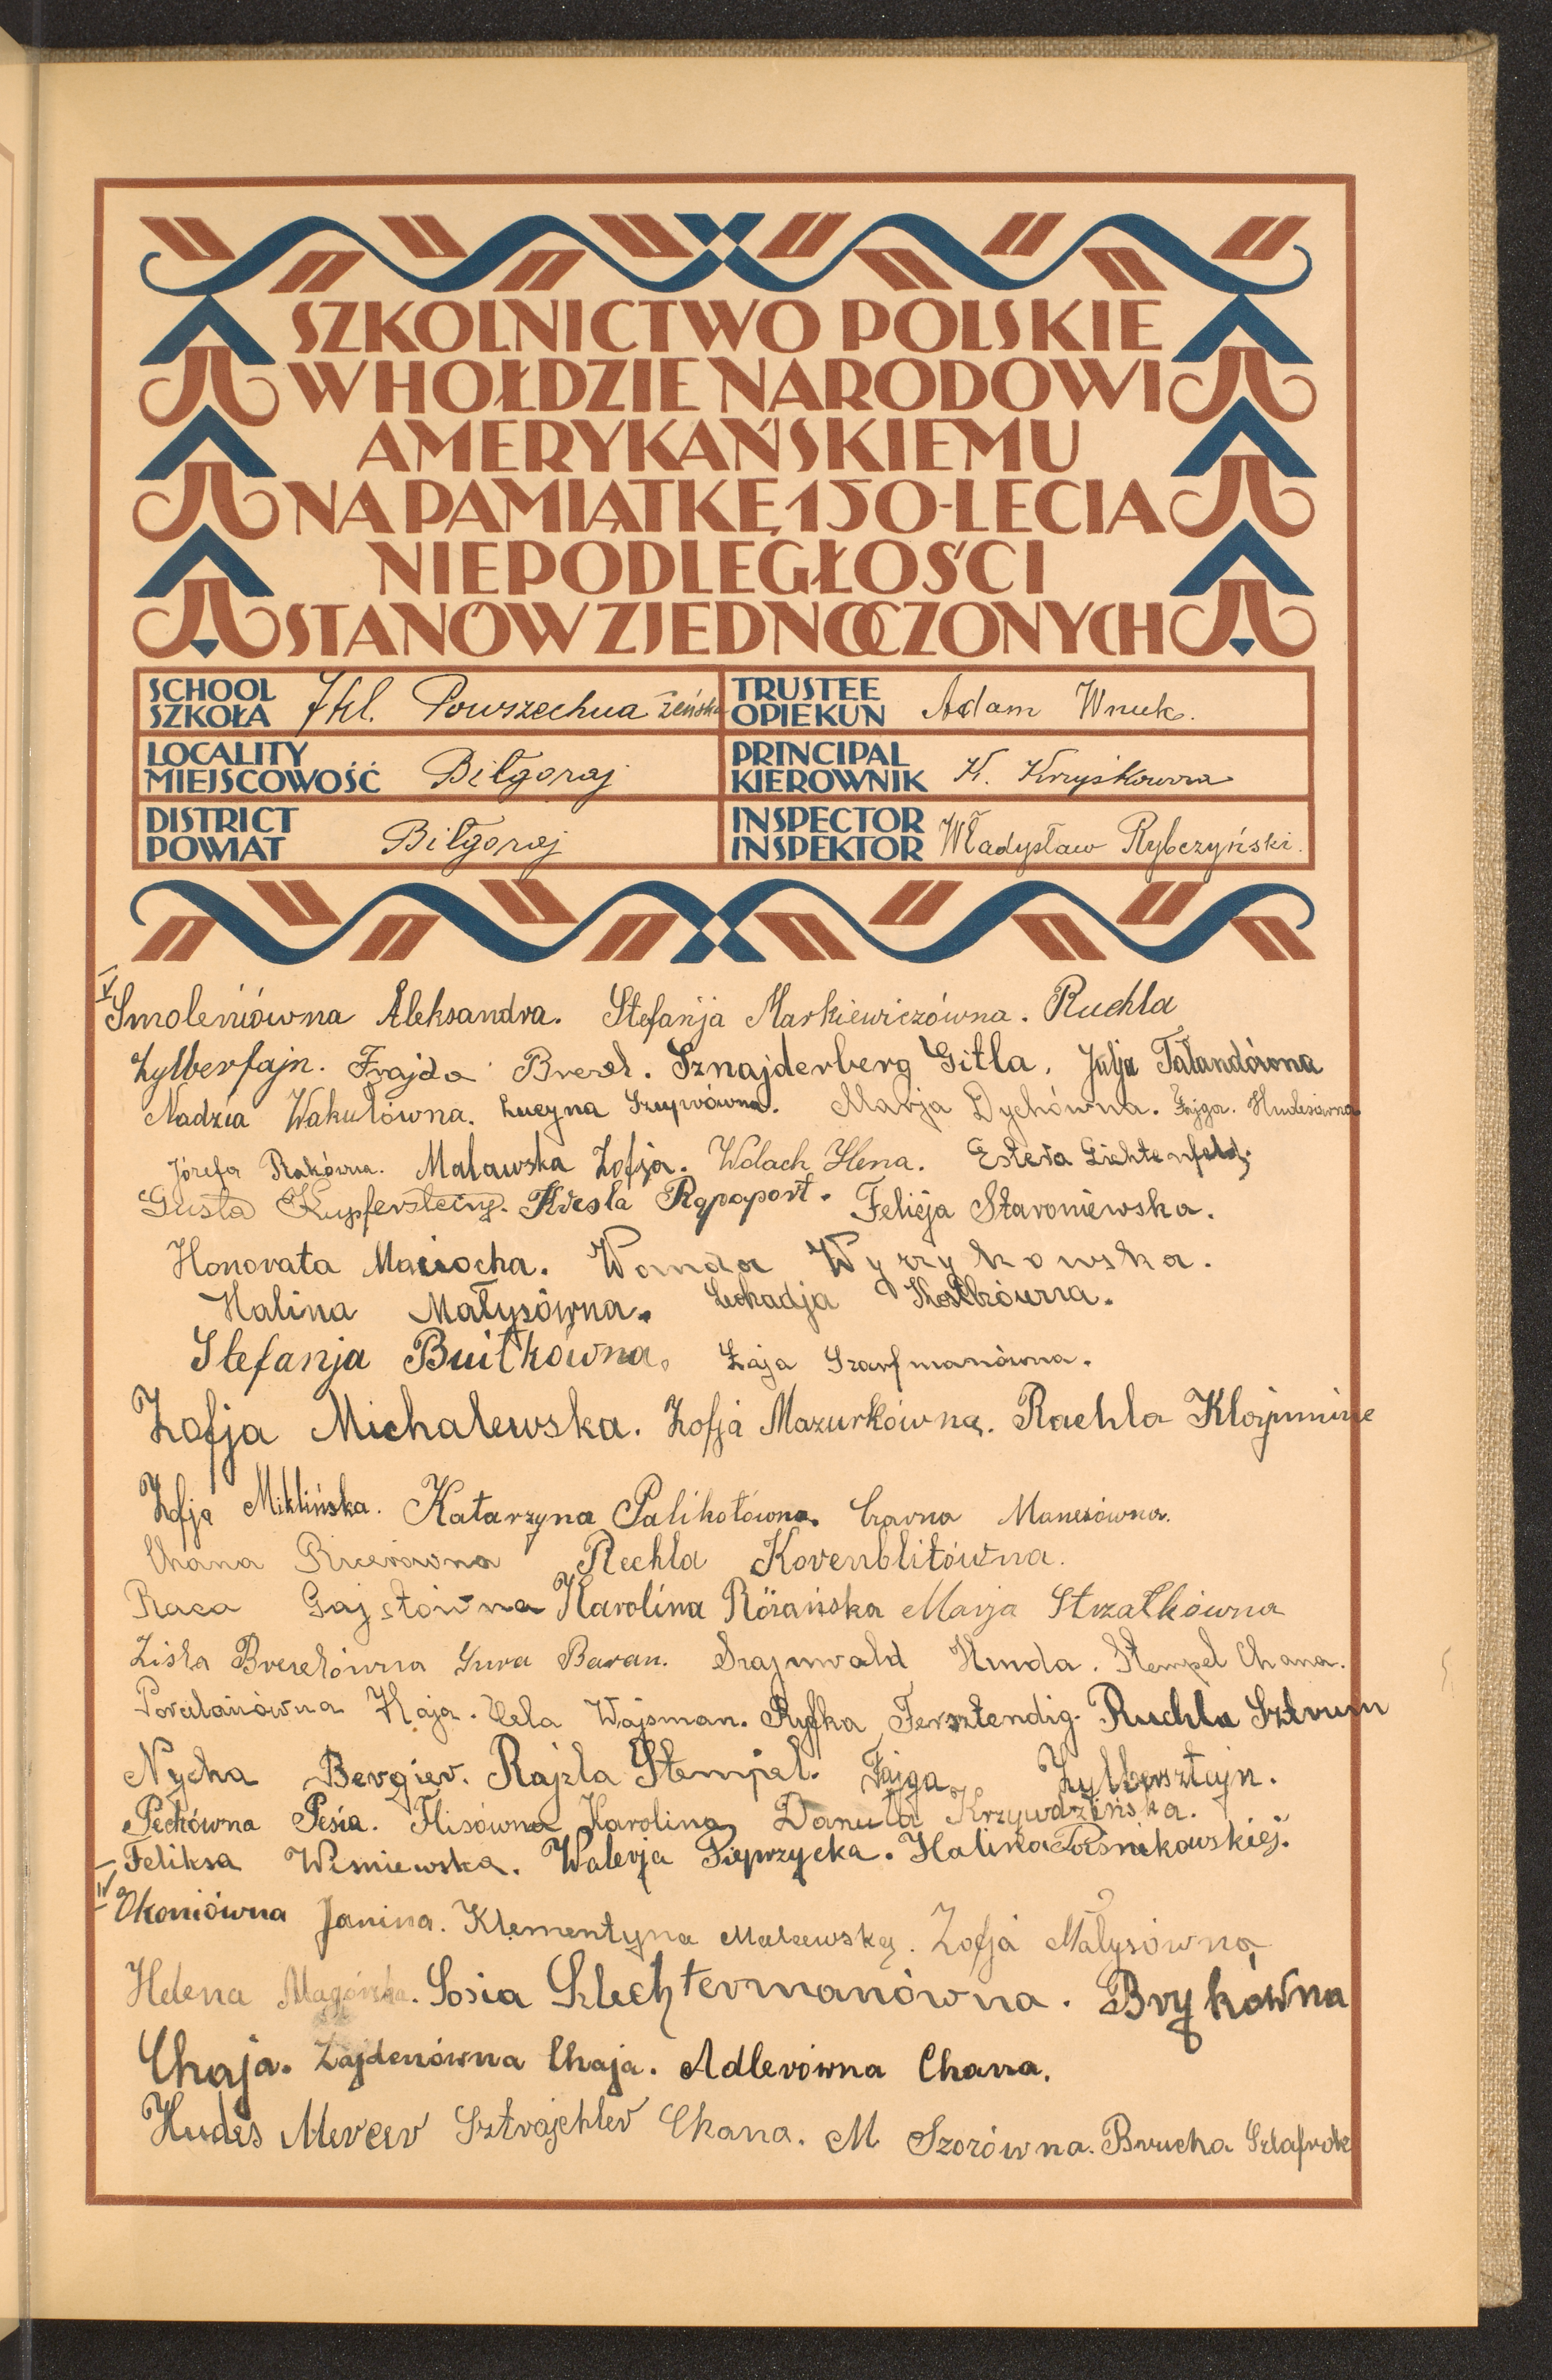 SZKOLNICTWO POLSKIE
W HOŁDZIE NARODOWI
AMERYKAŃSKIEMU
NA PAMIĄTKĘ 150-LECIA
NIEPODLEGŁOŚCI
STANÓW ZJEDNOCZONYCH
SCHOOL SZKOŁA 7 kl. Powszechna żeńska
TRUSTEE OPIEKUN Adam Wnuk.
LOCALITY MIEJSCOWOŚĆ Biłgoraj
PRINCIPAL KIEROWNIK K. Krzyśkowna
DISTRICT POWIAT Biłgoraj
INSPECTOR INSPEKTOR Władysław Rybczyński.
Smoleniówna Aleksandra. Stefanja Markiewiczówna. Ruchla
Zylberfajn. Frajda Brezel. Sznajderberg Gitla. Julja Tałandówna
Nadzia Wakułówna. Lucyna Szuprówna. Marja Dychówna. Fajga. Hudesówna
Józefa Rakówna. Malawska Zofja. Wolach Hena. Estera Lichtenfeld.
Gusta Kupfersztein. Kresla Rapaport. Felicja Staroniewska.
Honorata Maciocha. Wanda Wyrzykowska.
Halina Małysówna. Leokadja Kostkówna.
Stefanja Buitkówna. Łaja Szarfmanówna.
Zofja Michalewska. Zofja Mazurkówna. Rachla Klajnminc
Zofja Miklińska. Katarzyna Palikotówna. Czarna Manesówna.
Chana Ricerówna Rechla Korenblitówna.
Raca Gajstówna Karolina Różańska Marja Strzałkówna
Ziska Brezelówna Sura Baran. Szajnwald Hinda. Stempel Chana.
Porculanówna Kaja. Hela Wajsman. Ryfka Fersztendig. Ruchla Sztrum
Nycha Bergier. Rajzla Stempel. Fajga Zylbersztejn.
Pechówna Pesia. Flisówna Karolina Danuta Krzywdzińska.
Feliksa Wiśniewska. Walerja Pieprzycka. Halina Pośnikowskiej.
IV Okoniówna Janina. Klementyna Malawska. Zofja Małysówna
Helena Magórska. Sosia Szlechtermanówna. Brykówna
Chaja. Zajdenówna Chaja. Adlerówna Chana.
Hudes Mercer Sztrajchler Chana. M Szorówna. Brucha Szlafrok